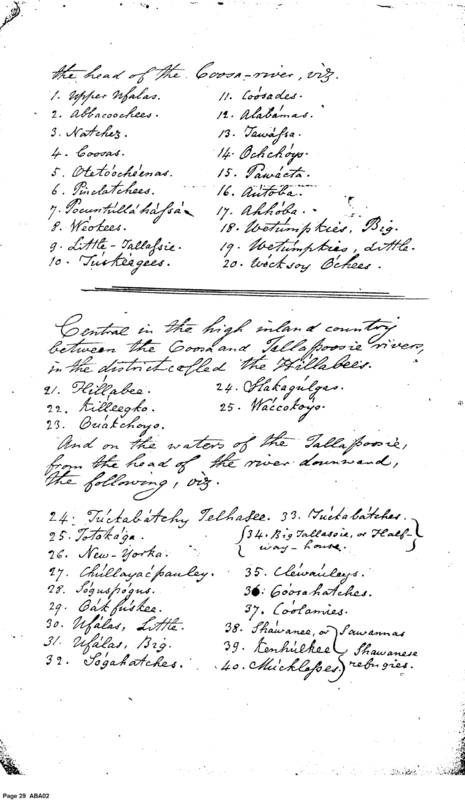 the head of the Coosa-river, viz.
1. Upper Ufalas.
2. Abbacoochees.
3. Natchez.
4. Coosas.
5. Otetóocheenas.
6. Pinclatchees.
7. Pocuntúllahássà
8. Wéokees.
9. Little-Tallassie.
10. Túskéegees.
11. Coósades.
12. Alabámas.
13. Tawássa.
14. Ochckóys.
15. Pawácta.
16. Aútoba.
17. Ahhóba.
18. Wetúmpkies, Big.
19. Wetúmpkies, Little.
20. Wócksoy Óchees.
Central in the high inland country
between the Coosa and Tallapoosie rivers,
in the district called the Hillabees.
21. Híllabee.
22. Killeegko.
23. Oúakchoyo.
24. Slakagúlgas.
25. Wáccokoyo.
And on the waters of the Tallapoosie,
from the head of the river downward,
the following, viz.
24. Túckabátchy Telhasee.
25. Totokága.
26. New-Yorka.
27. Chúllayacpauley.
28. Sóguspogus.
29. Oákfúskee.
30. Ufálas, Little.
31. Ufálas, Big.
32. Sógahatches.
33. Túckabátches.
34. Big Tallassia, or Half-
way-house.
35. Cléwauleys.
36. Góosahatches.
37. Coólamies.
38. Sháwanee, or Sawannas
39. Kenhúlkee
40. Múcklesses.
Shawanese
refugies.
Page 29 ABA02